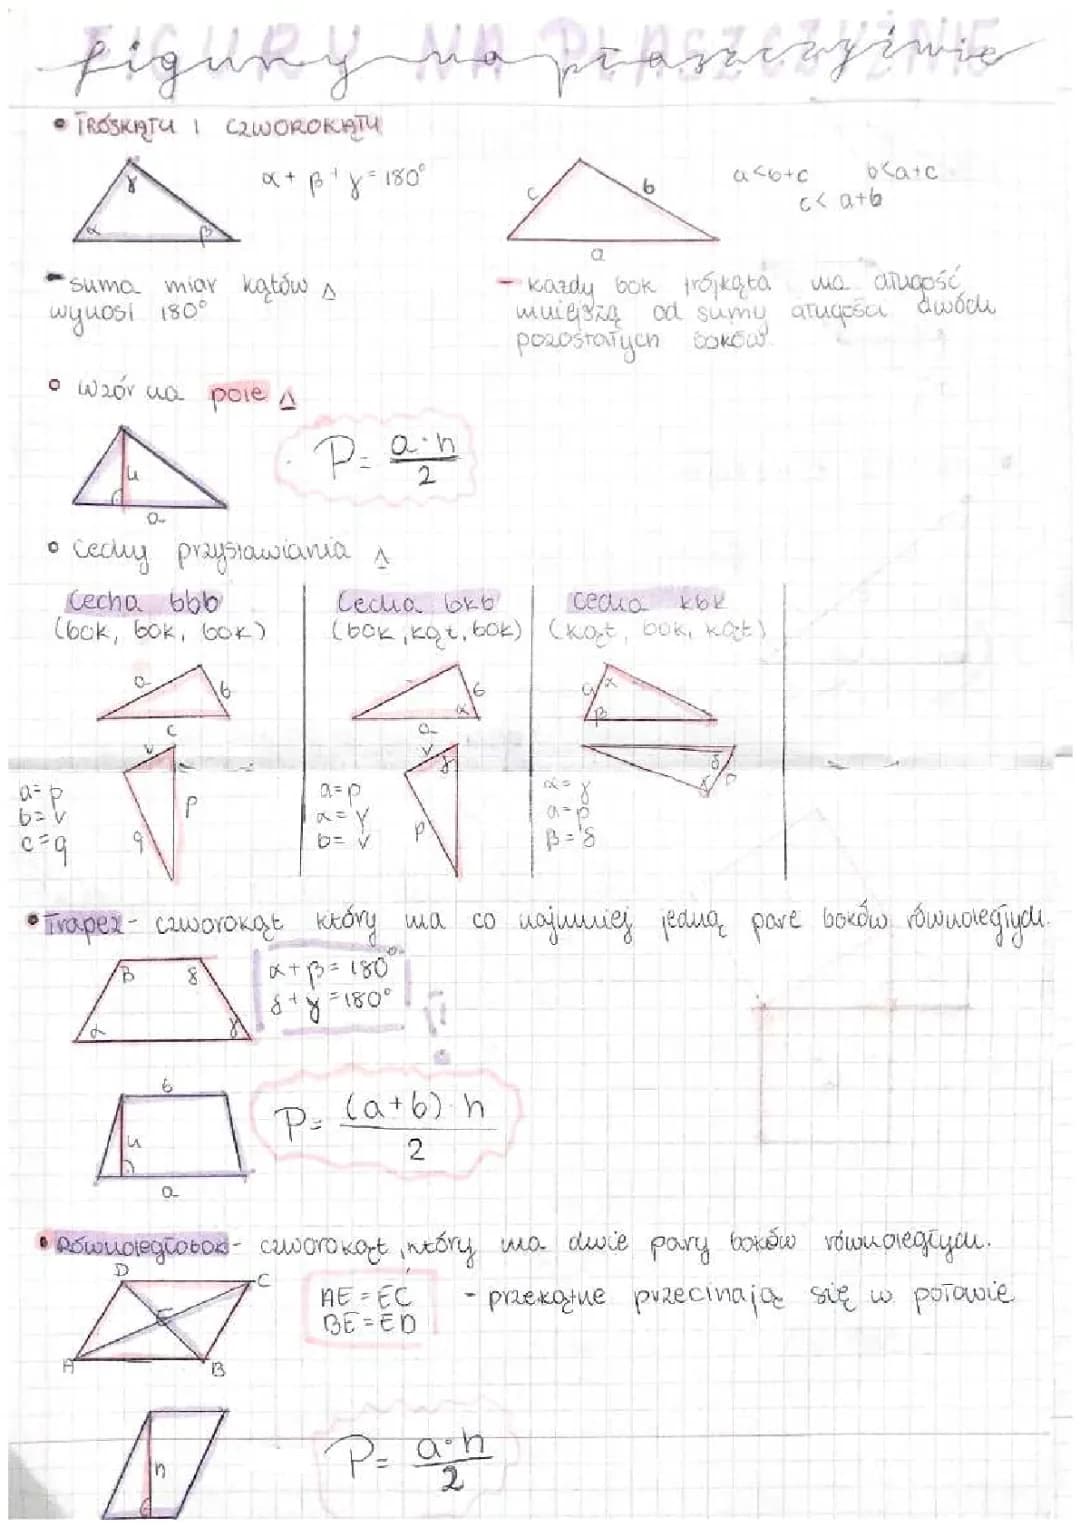 FIGURY NA PŁASZCZYŹNIE
figury na płaszczyźnie
• TRÓJKĄTY I CZWOROKĄTY
γ
α β
α + β + γ = 180°
c b
a
a<b+c b<a+c
c< a+b
- suma miar kątów △
wynosi 180°
- każdy bok trójkąta ma długość
mniejszą od sumy długości dwóch
pozostałych boków.
• wzór na pole △
h
a
P = a·h / 2
• cechy przystawiania △
Cecha bbb
(bok, bok, bok)
a b
c
v
p
q
a=p
b=v
c=q
Cecha bkb
(bok, kąt, bok)
b
α
a
v
γ
p
a=p
α=γ
b=v
cecha kbk
(kąt, bok, kąt)
a α
β
δ
γ p
α=γ
a=p
β=δ
• Trapez - czworokąt który ma co najmniej jedną pare boków równoległych.
β δ
α γ
α + β = 180°
δ + γ = 180°
!
b
h
a
P = (a+b)·h / 2
• Równoległobok - czworokąt, który ma dwie pary boków równoległych.
D C
E
A B
AE = EC
BE = ED
- przekątne przecinają się w połowie
h
P = a·h / 2